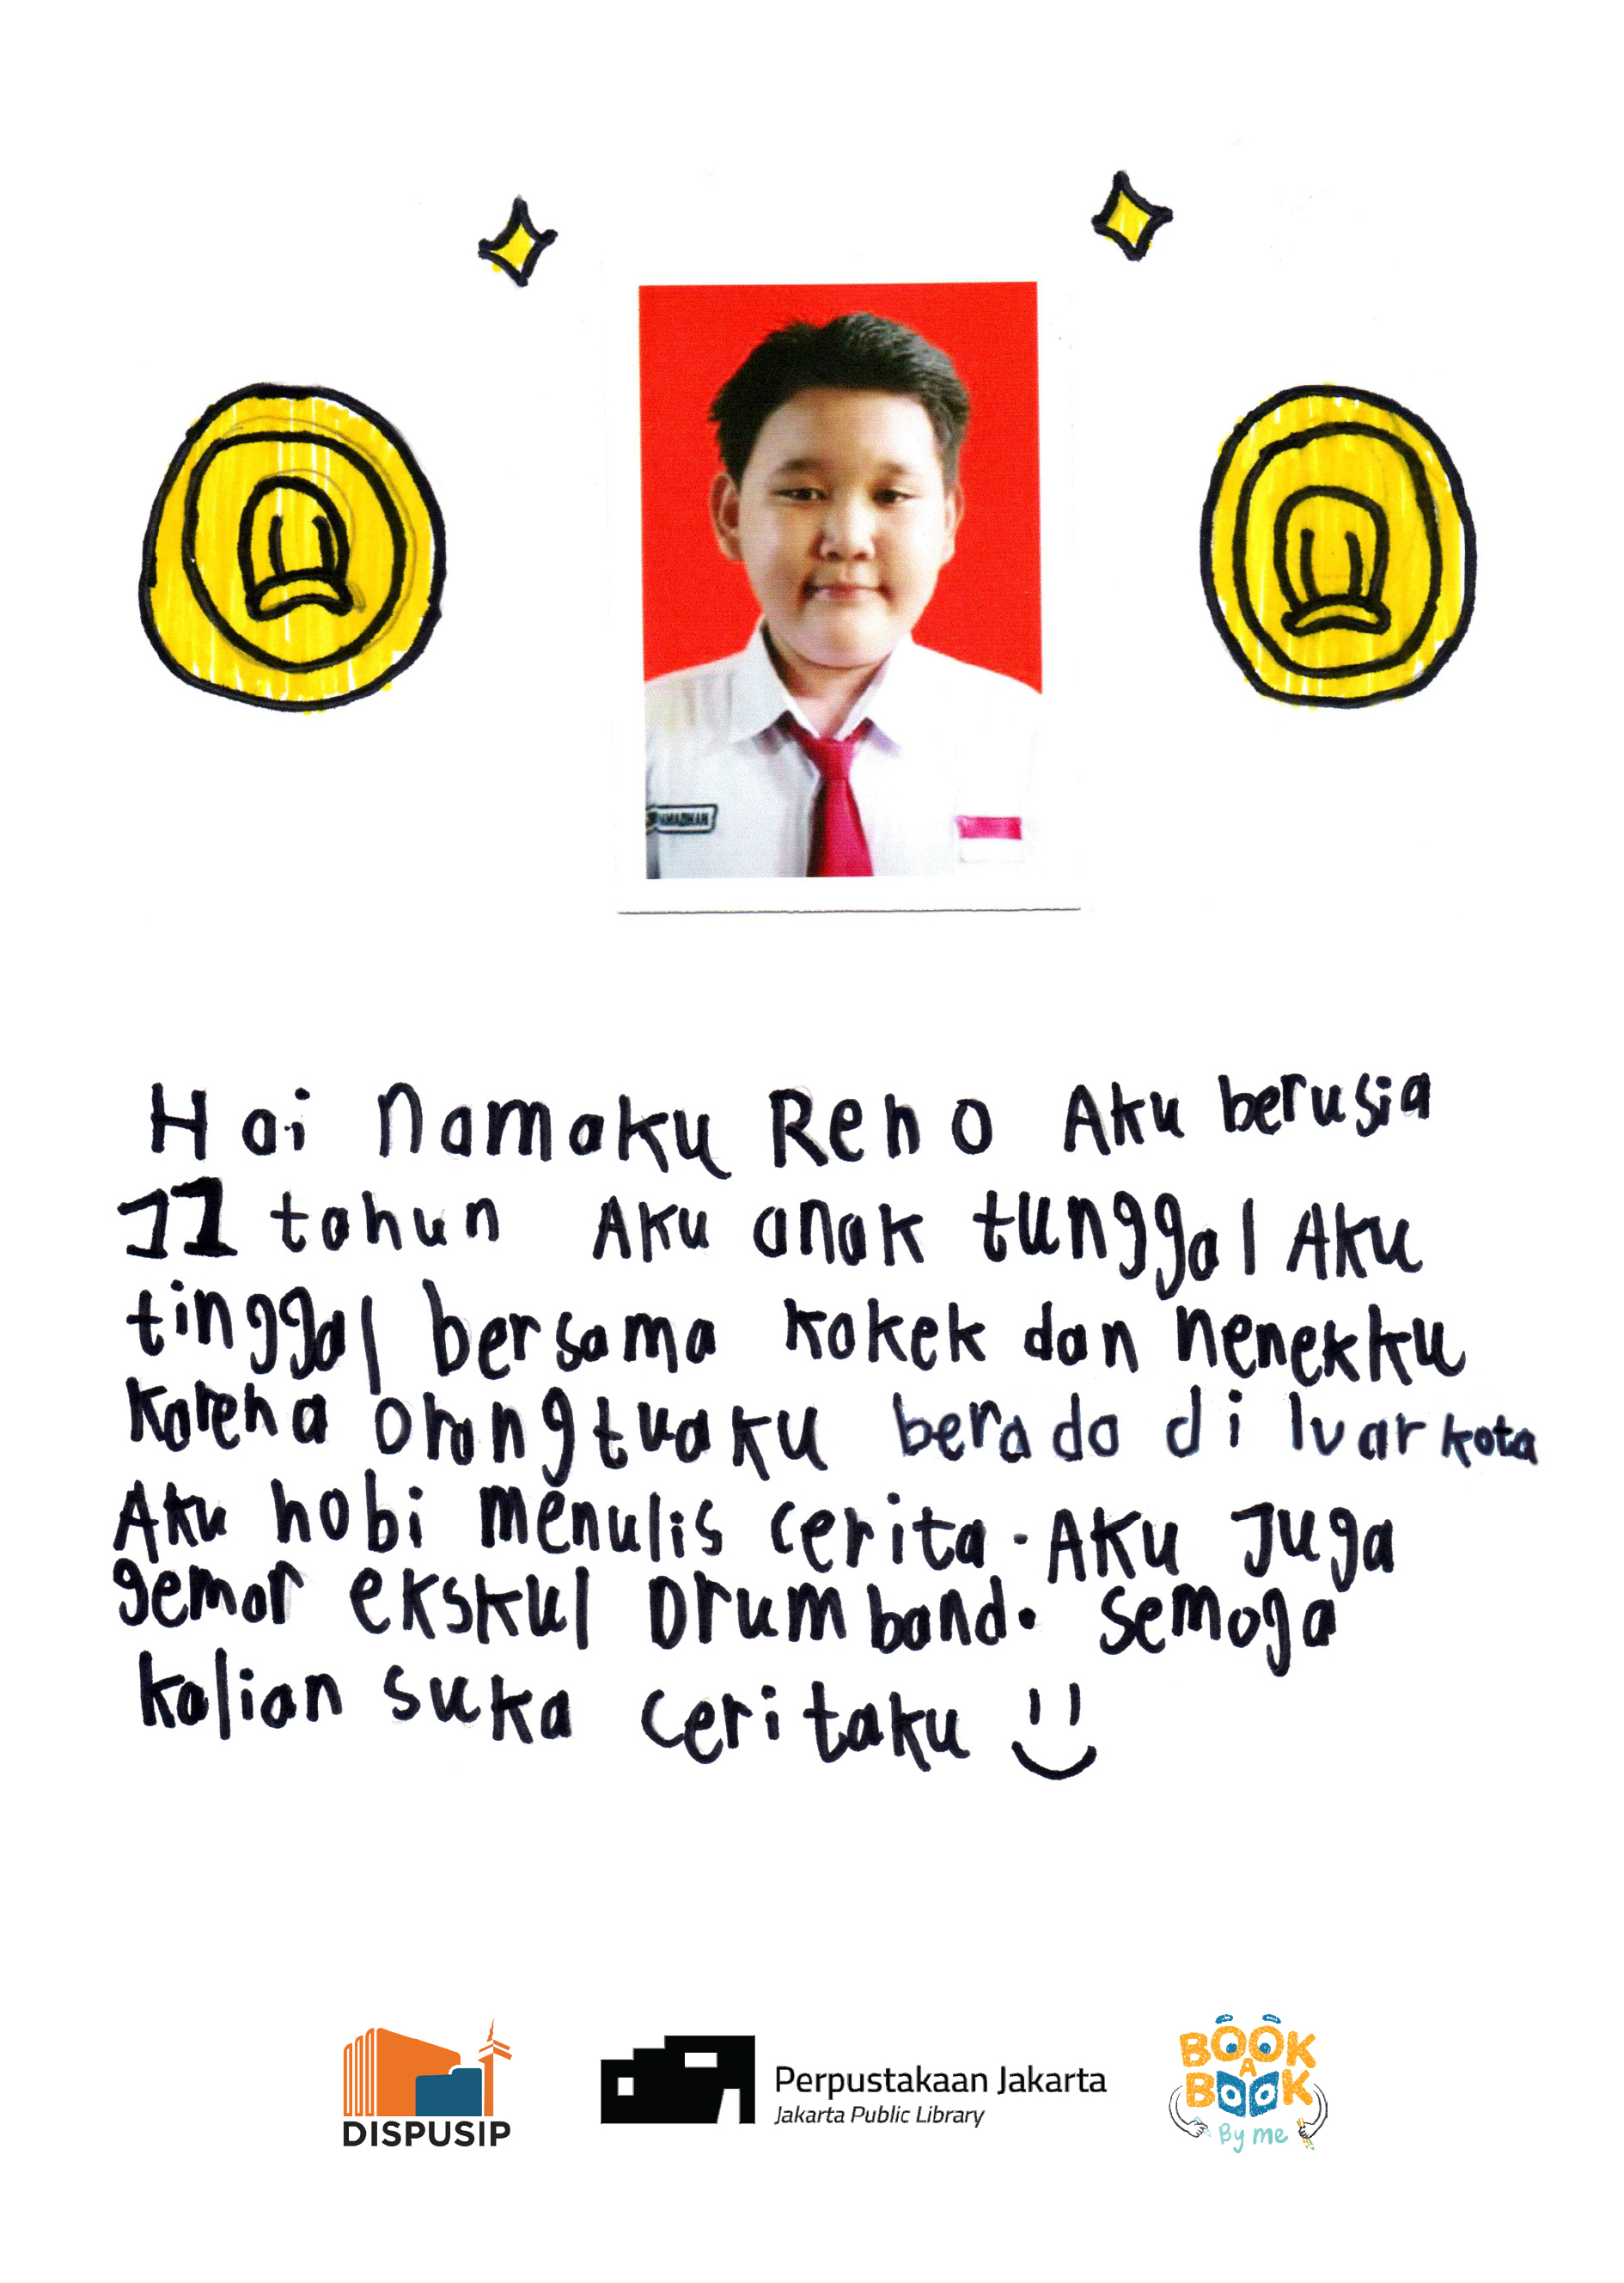 RAMADHAN
Hai namaku Reno Aku berusia
11 tahun Aku anak tunggal Aku
tinggal bersama kakek dan nenekku
karena orangtuaku berada di luar kota
Aku hobi menulis cerita. Aku Juga
gemar ekskul Drumband. semoga
kalian suka ceritaku
DISPUSIP
Perpustakaan Jakarta
Jakarta Public Library
BOOK
A
BOOK
By me